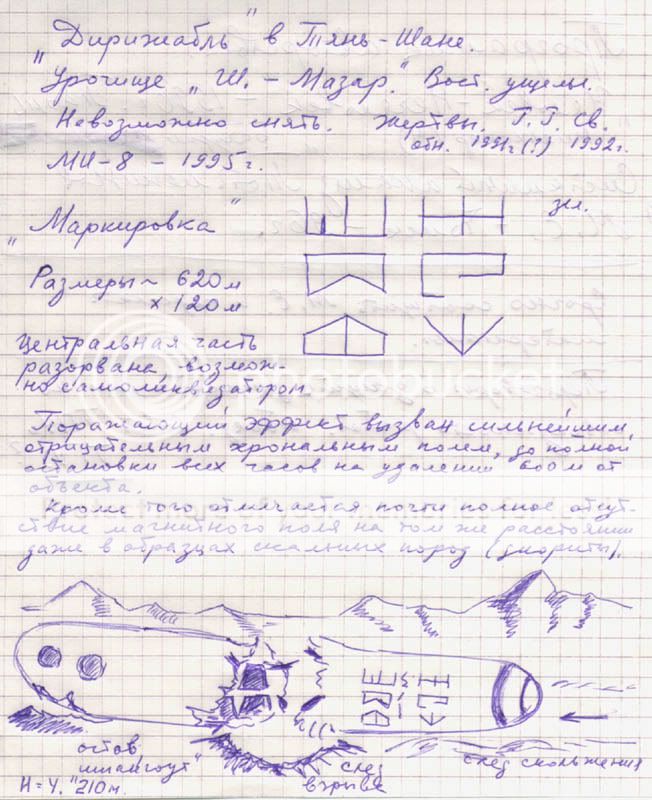 „Дирижабль" в Тянь-Шане.
Урочище „Ш.-Мазар." Вост. ущелье.
Невозможно снять. Жертвы. Г.Г. Св.
обн. 1991г(?) 1992г.
МИ-8 - 1995г.
„Маркировка"
зел.
Размеры ~ 620м
х 120м
Центральная часть
разорвана, возмож-
но самоликвидатором
Поражающий эффект вызван сильнейшим,
отрицательным хрональным полем, до полной
остановки всех часов на удалении 600м от
объекта.
Кроме того отмечается почти полное отсут-
ствие магнитного поля на том же расстоянии
даже в образцах скальных пород (диориты).
остов
шпангоут"
след
взрыва
след скольжения
Н=4.210м.